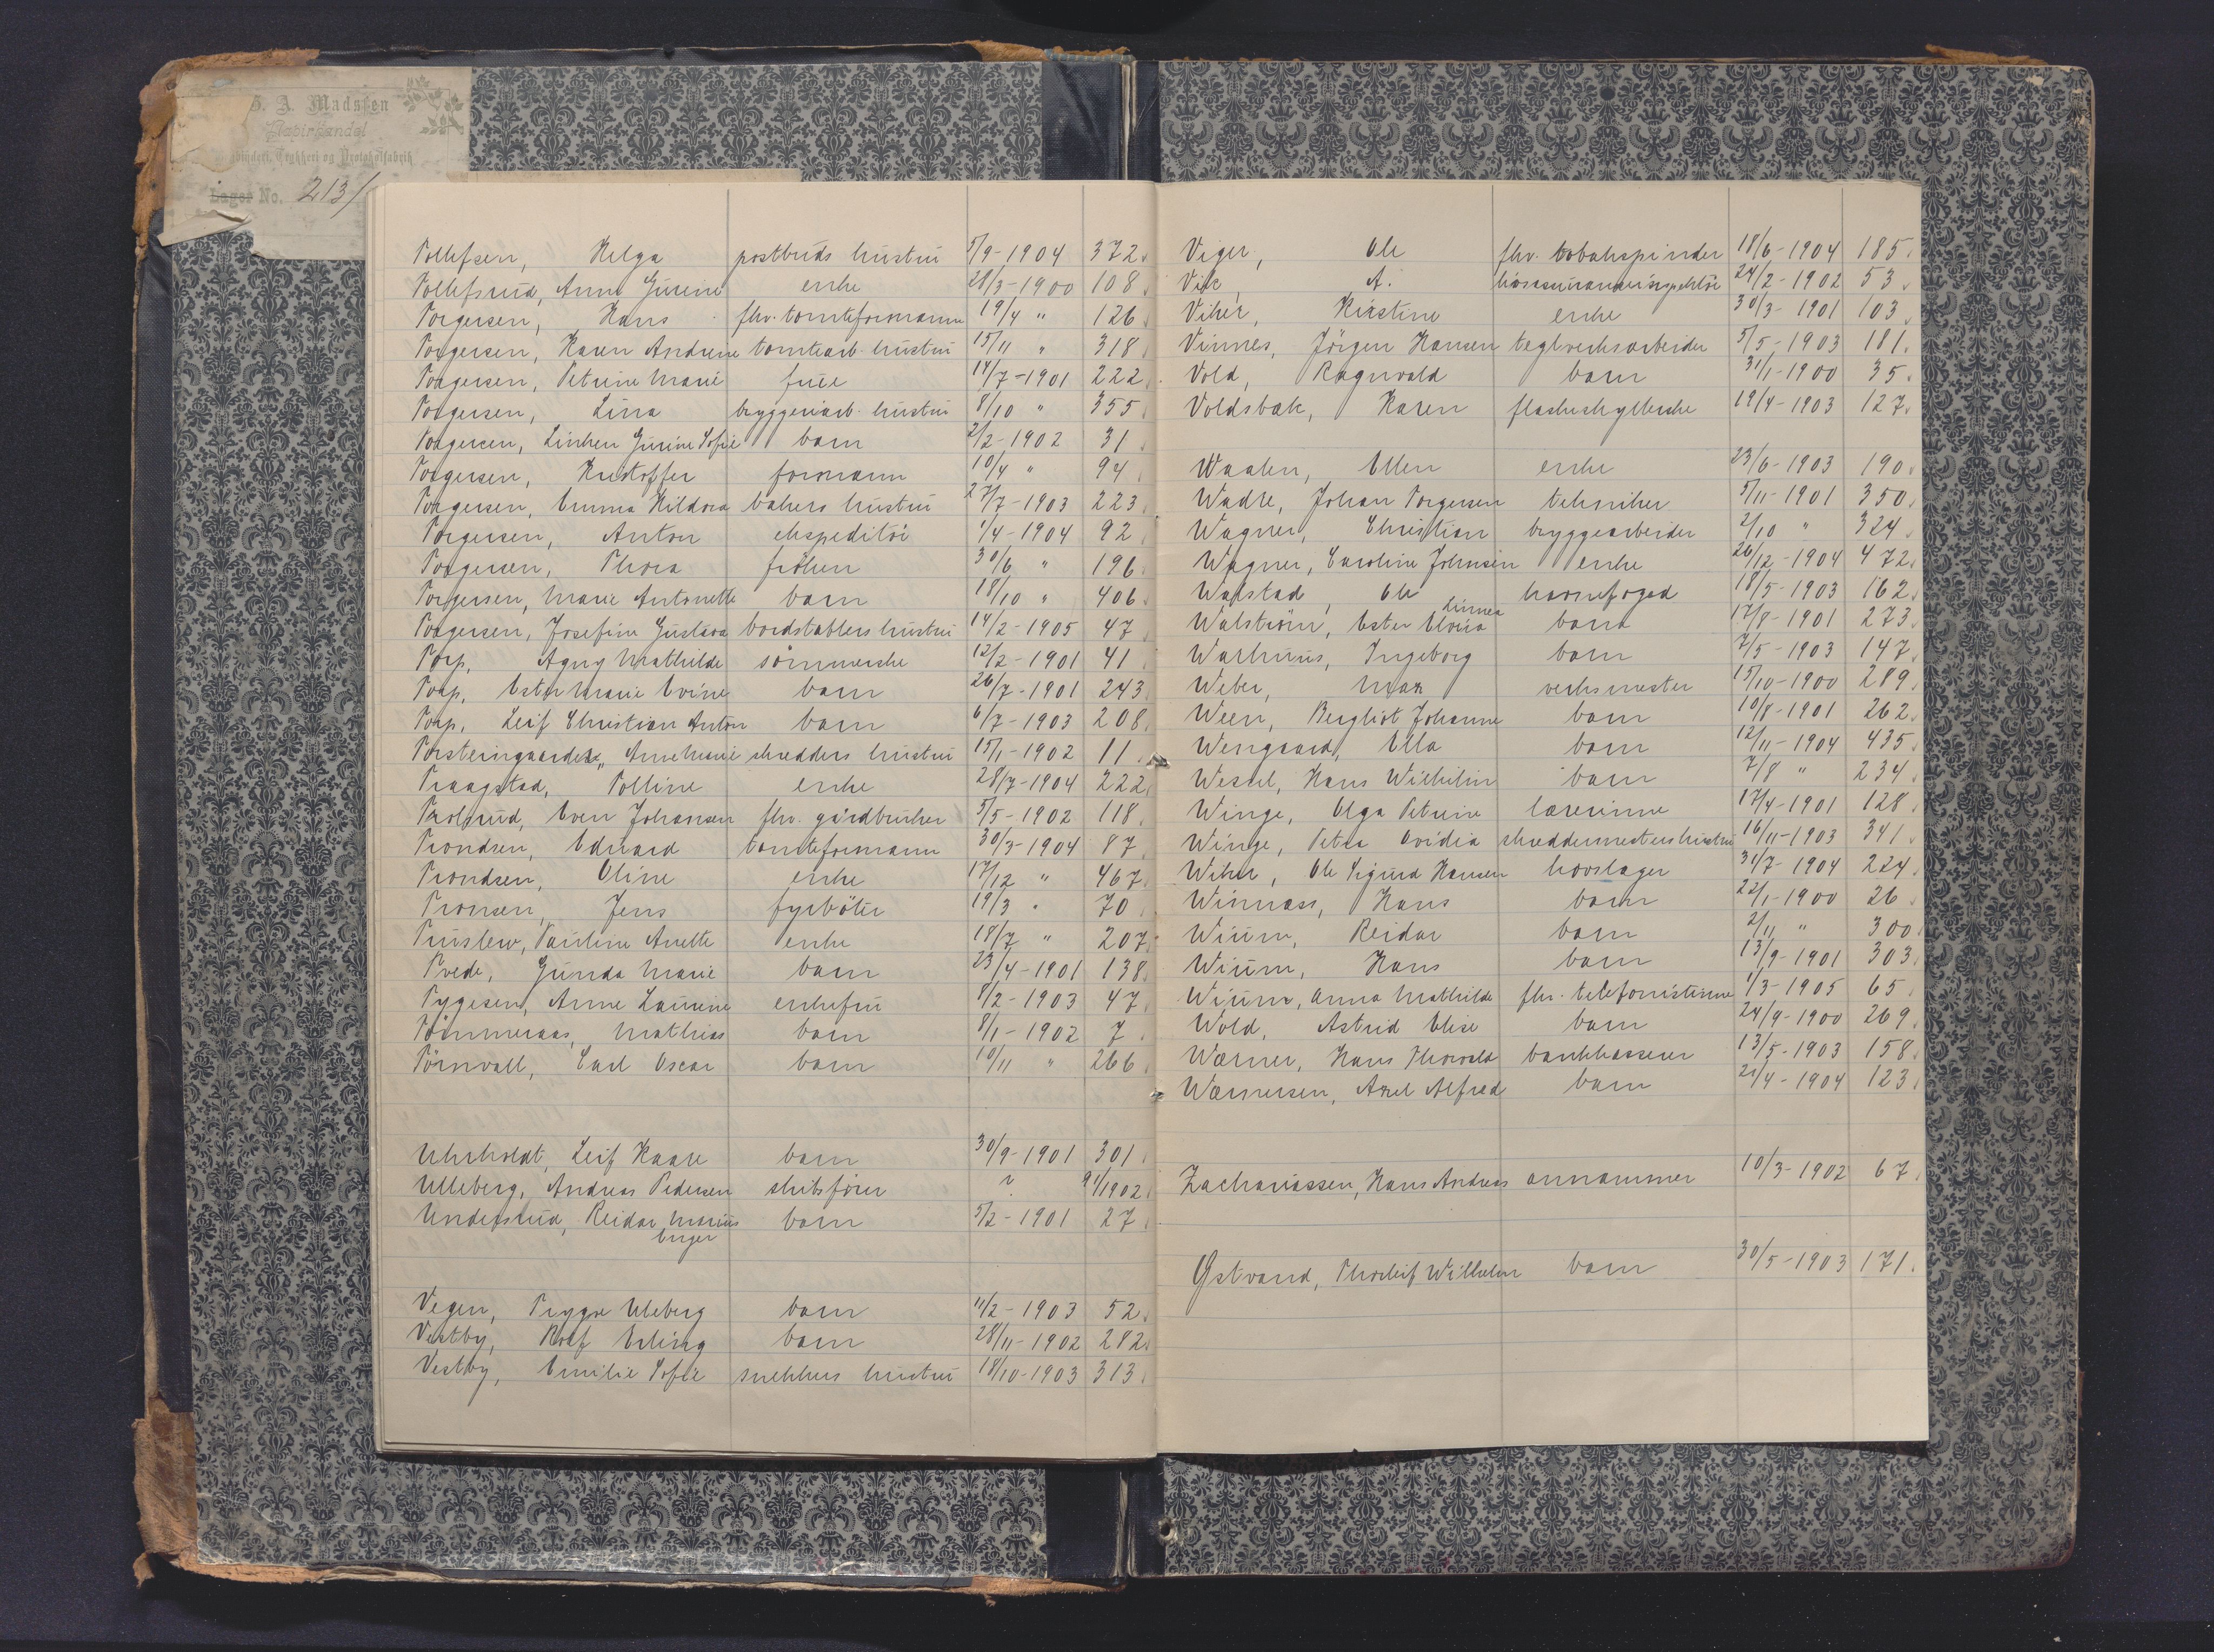 A. Madssen
Papirhandel
Trykkeri og Protokolfabrik
Lager No. 213/
Tollefsen, Helga postbuds hustru 5/9-1904 372
Tollefsrud, Anne Gurine enke 28/3-1900 108
Torgersen, Hans fhv. tomteformann 19/4 " 126
Torgersen, Karen Andrine tomtearb. hustru 15/11 " 318
Torgersen, Petrine Marie frue 14/7-1901 222
Torgersen, Lina bryggeriarb. hustru 8/10 " 355
Torgersen, Linken Gurine Sofie barn 2/2-1902 31
Torgersen, Kristoffer formann 10/4 " 94
Torgersen, Emma Hildora bakers hustru 27/7-1903 223
Torgersen, Anton ekspeditör 1/4-1904 92
Torgersen, Thora fröken 30/6 " 196
Torgersen, Marie Antonette barn 18/10 " 406
Torgersen, Josefine Gustava bordstablers hustru 14/2-1905 47
Torp, Agny Mathilde sömmerske 12/2-1901 41
Torp, Ester Marie Evine barn 26/7-1901 243
Torp, Leif Christian Anton barn 6/7-1903 208
Torsteinsgaardet, Anne Marie skredders hustru 15/1-1902 11
Traagstad, Polline enke 28/7-1904 222
Trolsrud, Even Johansen fhv. gårdbruker 5/5-1902 118
Trondsen, Edvard tomteformann 30/3-1904 87
Trondsen, Oline enke 17/12 " 467
Tronsen, Jens fyrböter 19/3 " 70
Truslew, Pauline Anette enke 18/7 " 207
Tvede, Gunda Marie barn 23/4-1901 138
Tygesen, Anne Laurine enkefru 8/2-1903 47
Tömmeraas, Mathias barn 8/1-1902 7
Törnvall, Carl Oscar barn 10/11 " 266
Uhrholdt, Leif Kaare barn 30/9-1901 301
Ulleberg, Andreas Pedersen skibsförer ? 91/1902
Undersrud, Reidar Marius barn 5/2-1901 27
Inger
Vegen, Trygve Uleberg barn 11/2-1903 52
Vestby, Rolf Erling barn 28/11-1902 282
Vestby, Emilie Sofie snekkers hustru 18/10-1903 313
Viger, Ole fhv. tobakspinder 18/6-1904 185
Vik, A. 24/2-1902 53
Viker, Kirstine enke 30/3-1901 103
Vinnes, Jörgen Hansen teglverksarbeider 5/5-1903 181
Vold, Ragnvald barn 31/1-1900 35
Voldsbak, Karen flaskeskyllerske 19/4-1903 127
Waalen, Ellen enke 23/6-1903 190
Wadle, Johan Torgersen tekniker 5/11-1901 350
Wagner, Christian bryggearbeider 2/10 " 324
Wagner, Caroline Johnsen enke 26/12-1904 472
Walstad, Ole havnefoged 18/5-1903 162
Walström, Ester Elvira Linnea barn 17/8-1901 273
Warhuus, Ingeborg barn 7/5-1903 147
Weber, Max verksmester 15/10-1900 289
Ween, Bergliot Johanne barn 10/8-1901 262
Wengaard, Ella barn 12/11-1904 435
Wessel, Hans Wilhelm barn 7/8 " 234
Winge, Olga Petrine lærerinne 17/4-1901 128
Winge, Petra Ovidia skreddermesters hustru 16/11-1903 341
Wiker, Ole Sigurd Hansen hovslager 31/7-1904 224
Winnass, Hans barn 22/1-1900 26
Wium, Reidar barn 2/11 " 300
Wium, Hans barn 13/9-1901 303
Wium, Anna Mathilde fhv. telefonistinne 1/3-1905 65
Wold, Astrid Elise barn 24/9-1900 269
Wærner, Hans Thorvald bankkasserer 13/5-1903 158
Wærnersen, Axel Alfred barn 21/4-1904 123
Zachariassen, Hans Andreas annammer 10/3-1902 67
Østvand, Thorleif Wilhelm barn 30/5-1903 171